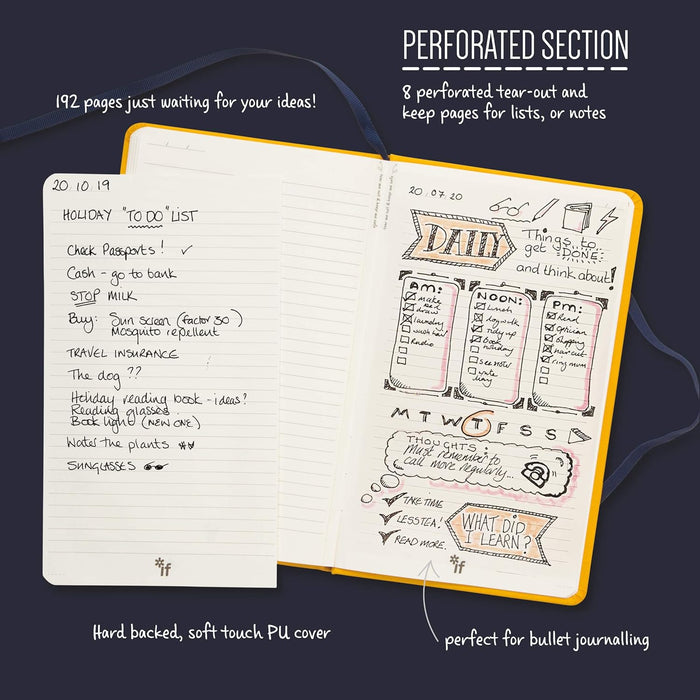 PERFORATED SECTION
8 perforated tear-out and
keep pages for lists, or notes
192 pages just waiting for your ideas!
20.10.19
HOLIDAY "TO DO" LIST
Check Passports! ✓
Cash - go to bank
STOP MILK
Buy: Sun screen (factor 30)
Mosquito repellent
TRAVEL INSURANCE
The dog ??
Holiday reading book - ideas?
Reading glasses
Book light (NEW ONE)
Water the plants
SUNGLASSES
*if
20.07.20
DAILY
Things to
get DONE:
and think about!
AM:
make
bed
draw
laundry
wash hair
Radio
NOON:
lunch
dog walk
tidy up
Book
holiday
see note
write
diary
PM:
Read
Optician
Shopping
haircut
ring mum
M T W T F S S
THOUGHTS:
Must remember to
call more regularly...
TAKE TIME
LESS TEA!
READ MORE.
WHAT DID
I LEARN?
*if
Hard backed, soft touch PU cover
perfect for bullet journalling